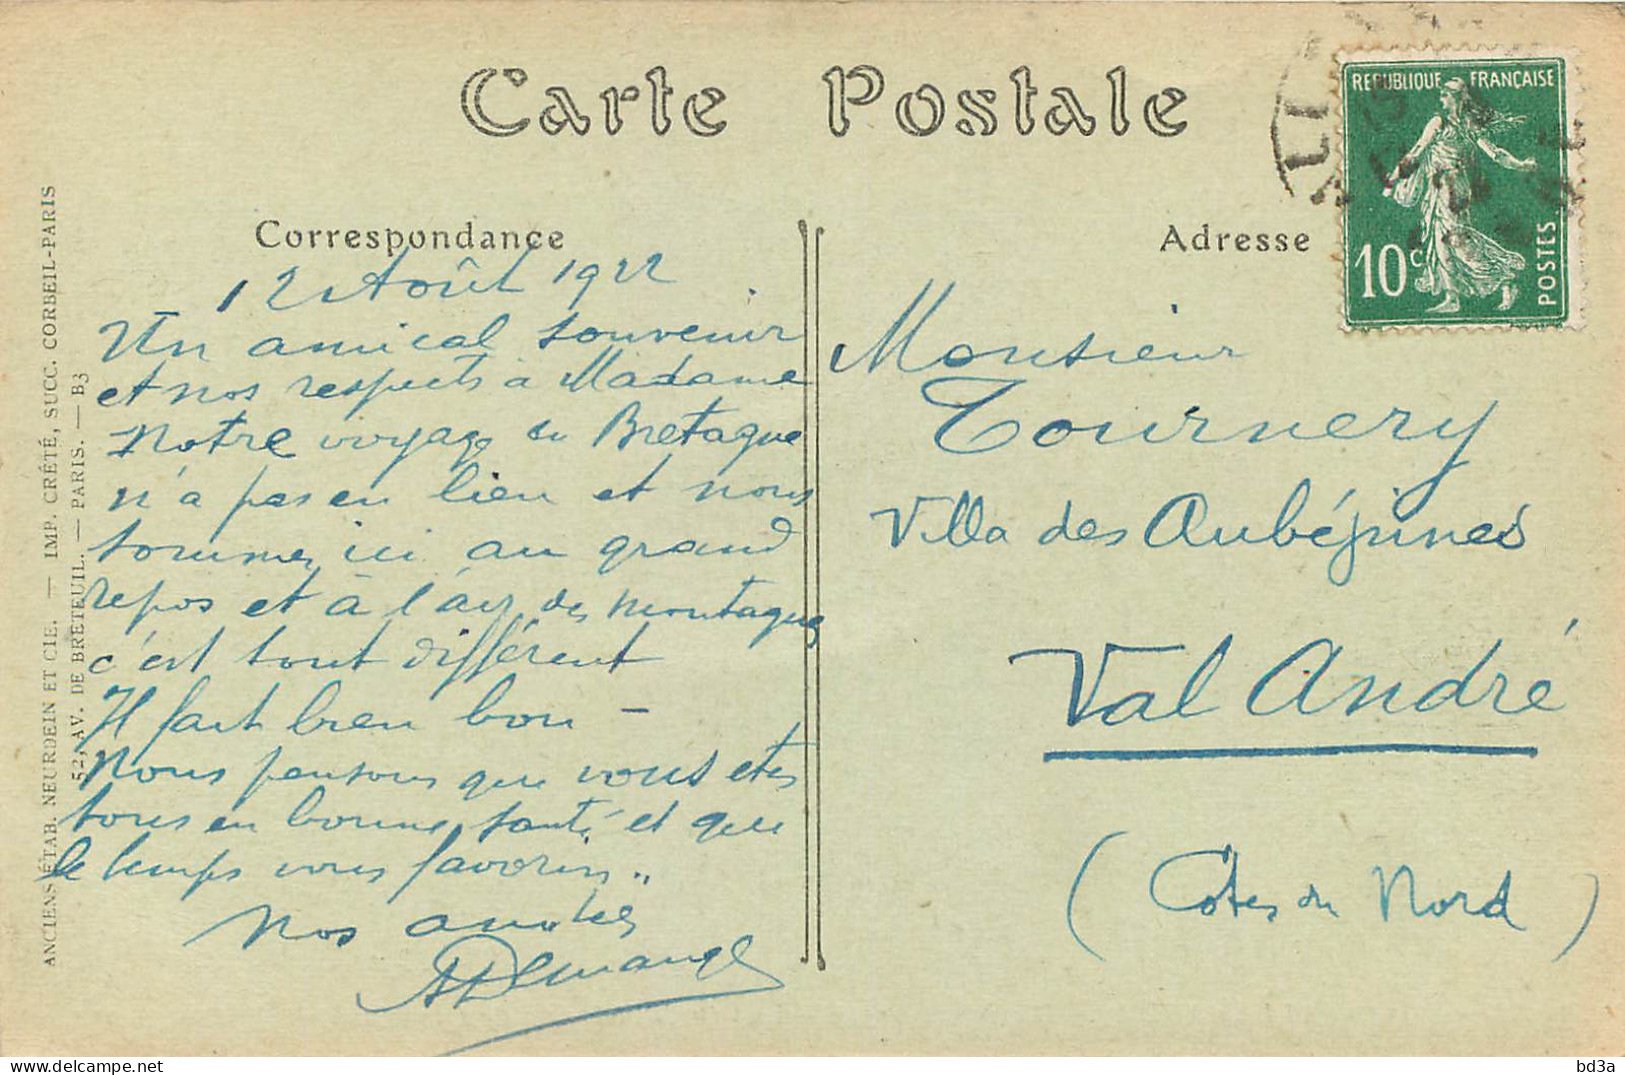 Carte Postale
Correspondance
Adresse
REPUBLIQUE FRANÇAISE
10c
POSTES
12 Août 1922
Un amical souvenir
et nos respects à Madame
Notre voyage en Bretagne
n'a pas eu lieu et nous
sommes ici au grand
repos et à l'air des montagnes
c'est tout différent
Il fait bien bon –
Nous pensons que vous etes
tous en bonne santé et que
le temps vous favorise..
Nos amitiés
Monsieur
Tournery
Villa des Aubépines
Val André
(Côtes du Nord)
ANCIENS ÉTAB. NEURDEIN ET CIE. — IMP. CRÉTÉ, SUCC. CORBEIL-PARIS
52, AV. DE BRETEUIL. — PARIS. — B3
bd3a